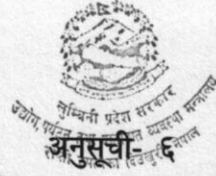 लुम्बिनी प्रदेश सरकार
उद्योग, पर्यटन तथा यातायात व्यवस्था मन्त्रालय
अनुसूची- ६
नेपाल